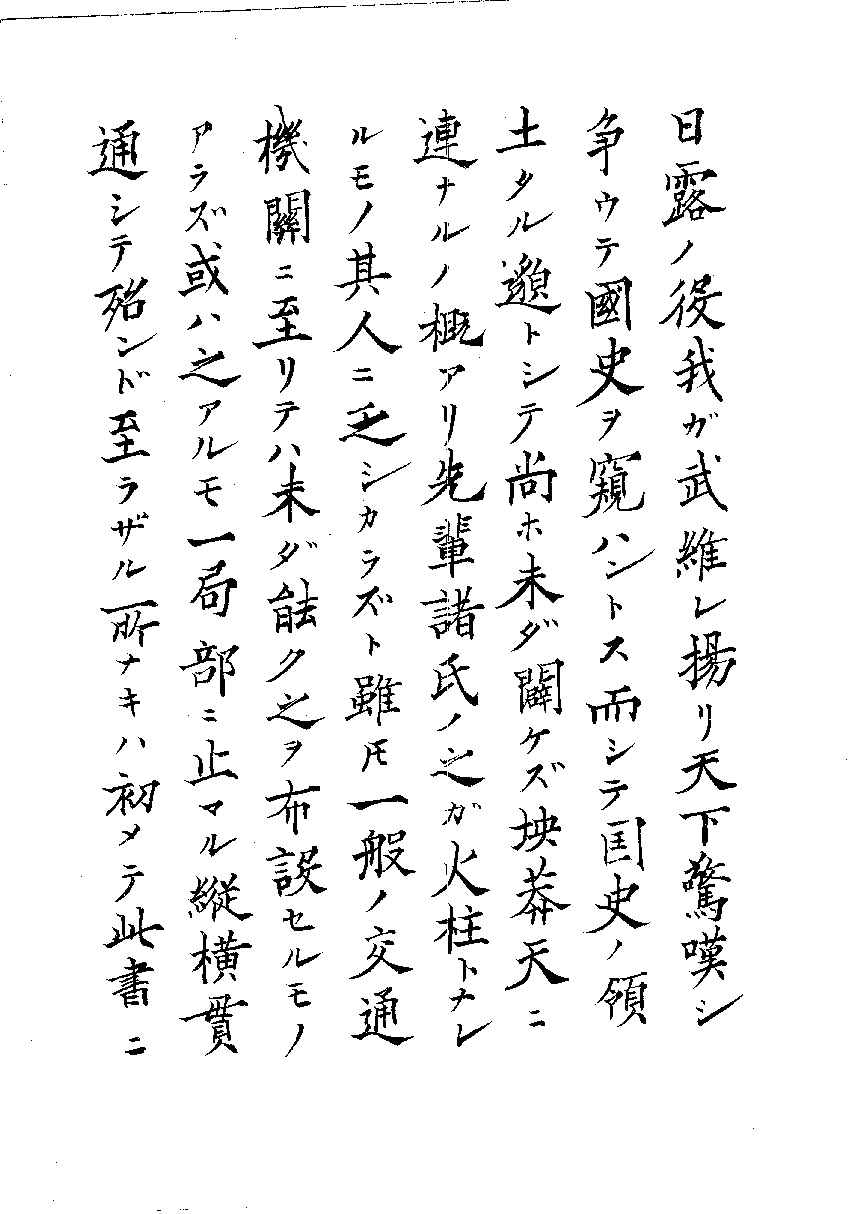 日露ノ役我ガ武維レ揚リ天下驚嘆シ
争ウテ國史ヲ窺ハントス而シテ国史ノ領
土タル邈トシテ尚ホ未ダ闢ケズ坱莽天ニ
連ナルノ概アリ先輩諸氏ノ之ガ火柱トナレ
ルモノ其人ニ乏シカラズト雖モ一般ノ交通
機關ニ至リテハ未ダ能ク之ヲ布設セルモノ
アラズ或ハ之アルモ一局部ニ止マル縦横貫
通シテ殆ンド至ラザル所ナキハ初メテ此書ニ